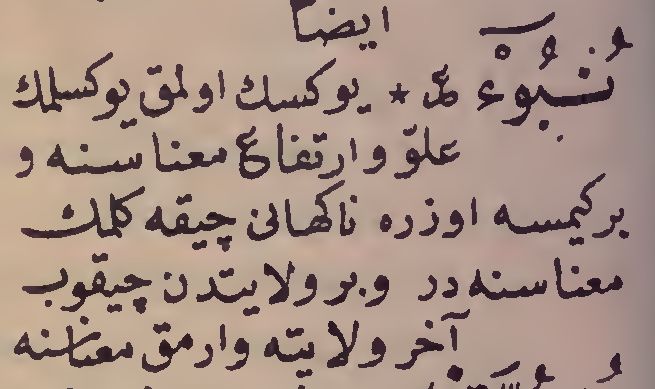 ايضا
نُبُوْء ع * يوكسك اولمق يوكسلمك
علوّ وارتفاع معناسنه و
بر كيمسه اوزره ناكهانى چيقه كلمك
معناسنه در وبر ولايتدن چيقوب
آخر ولايته وارمق معناسنه